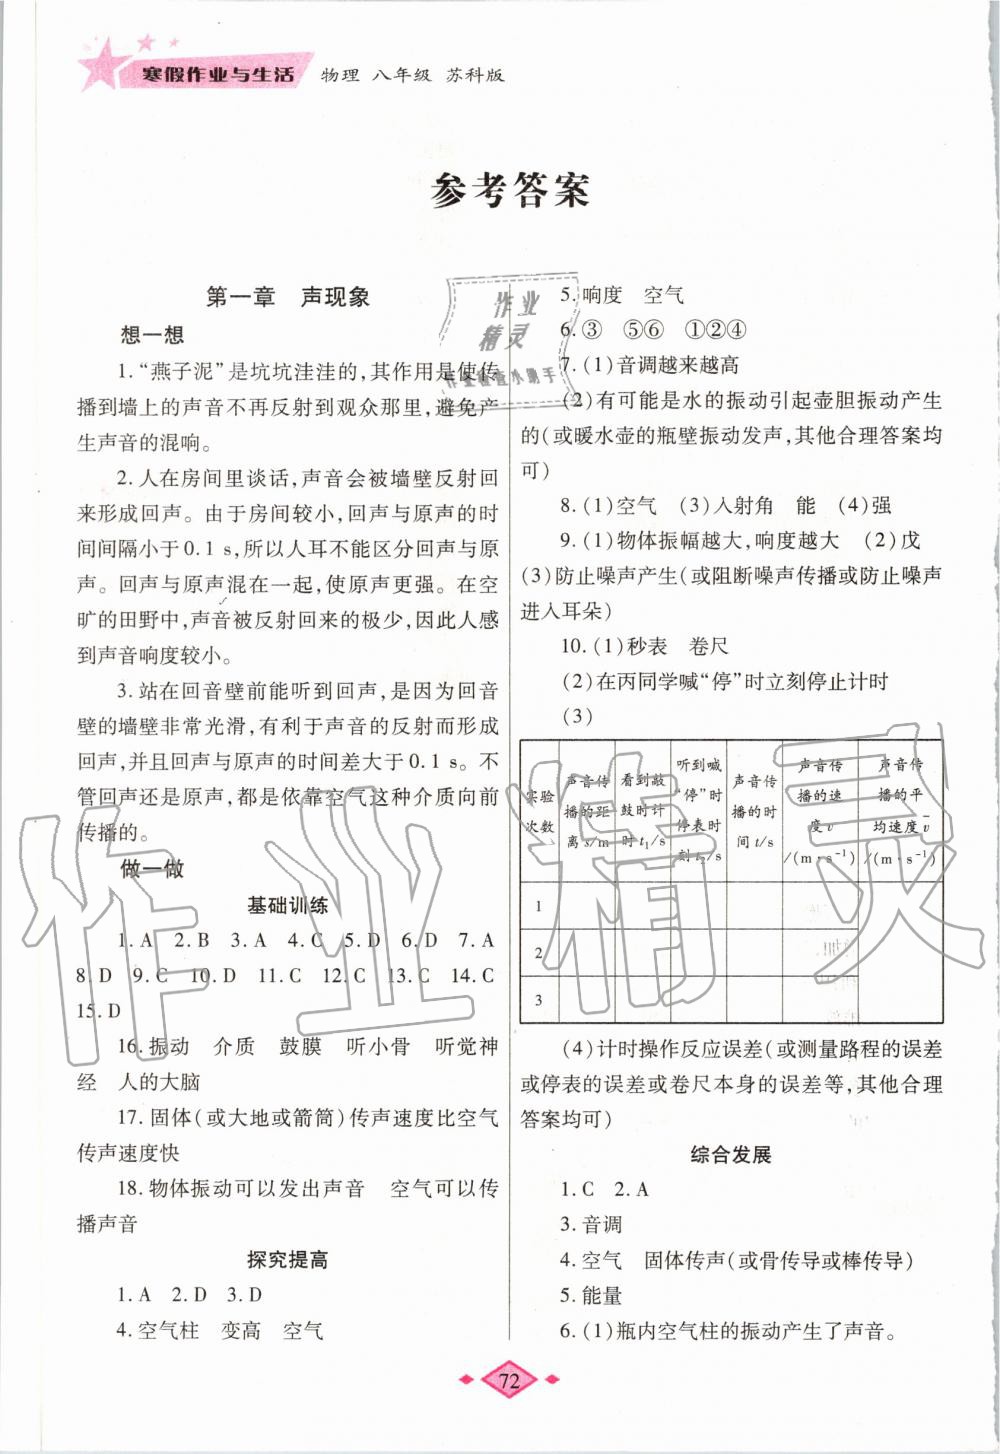 寒假作业与生活 物理 八年级 苏科版
参考答案
第一章 声现象
想一想
1.“燕子泥”是坑坑洼洼的,其作用是使传
播到墙上的声音不再反射到观众那里,避免产
生声音的混响。
2.人在房间里谈话,声音会被墙壁反射回
来形成回声。由于房间较小,回声与原声的时
间间隔小于0.1 s,所以人耳不能区分回声与原
声。回声与原声混在一起,使原声更强。在空
旷的田野中,声音被反射回来的极少,因此人感
到声音响度较小。
3.站在回音壁前能听到回声,是因为回音
壁的墙壁非常光滑,有利于声音的反射而形成
回声,并且回声与原声的时间差大于0.1 s。不
管回声还是原声,都是依靠空气这种介质向前
传播的。
做一做
基础训练
1.A 2.B 3.A 4.C 5.D 6.D 7.A
8.D 9.C 10.D 11.C 12.C 13.C 14.C
15.D
16.振动 介质 鼓膜 听小骨 听觉神
经 人的大脑
17.固体(或大地或箭筒)传声速度比空气
传声速度快
18.物体振动可以发出声音 空气可以传
播声音
探究提高
1.A 2.D 3.D
4.空气柱 变高 空气
5.响度 空气
6.③ ⑤⑥ ①②④
7.(1)音调越来越高
(2)有可能是水的振动引起壶胆振动产生
的(或暖水壶的瓶壁振动发声,其他合理答案均
可)
8.(1)空气 (3)入射角 能 (4)强
9.(1)物体振幅越大,响度越大 (2)戊
(3)防止噪声产生(或阻断噪声传播或防止噪声
进入耳朵)
10.(1)秒表 卷尺
(2)在丙同学喊“停”时立刻停止计时
(3)
实验
次数
声音传
播的距
离s/m
看到敲
鼓时计
时t₁/s
听到喊
“停”时
停表时
刻t₂/s
声音传
播的时
间t/s
声音传
播的速
度v
/(m·s⁻¹)
声音传
播的平
均速度v̄
/(m·s⁻¹)
1
2
3
(4)计时操作反应误差(或测量路程的误差
或停表的误差或卷尺本身的误差等,其他合理
答案均可)
综合发展
1.C 2.A
3.音调
4.空气 固体传声(或骨传导或棒传导)
5.能量
6.(1)瓶内空气柱的振动产生了声音。
72
作业
精灵
作业检查小助手
作业精灵